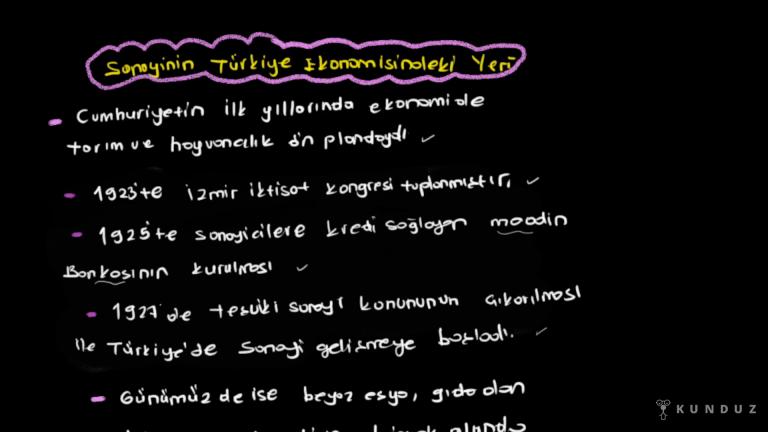 Sanayinin Türkiye Ekonomisindeki Yeri
- Cumhuriyetin ilk yıllarında ekonomide
tarım ve hayvancılık ön plandaydı ✓
- 1923'te izmir iktisat kongresi toplanmıştır, ✓
- 1925'te sanayicilere kredi sağlayan maadin
Bankasının kurulması ✓
- 1927'de teşviki sanayi kanununun çıkarılması
ile Türkiye'de Sanayi gelişmeye başladı. ✓
- Günümüz de ise beyaz eşya, gıda olan
KUNDUZ